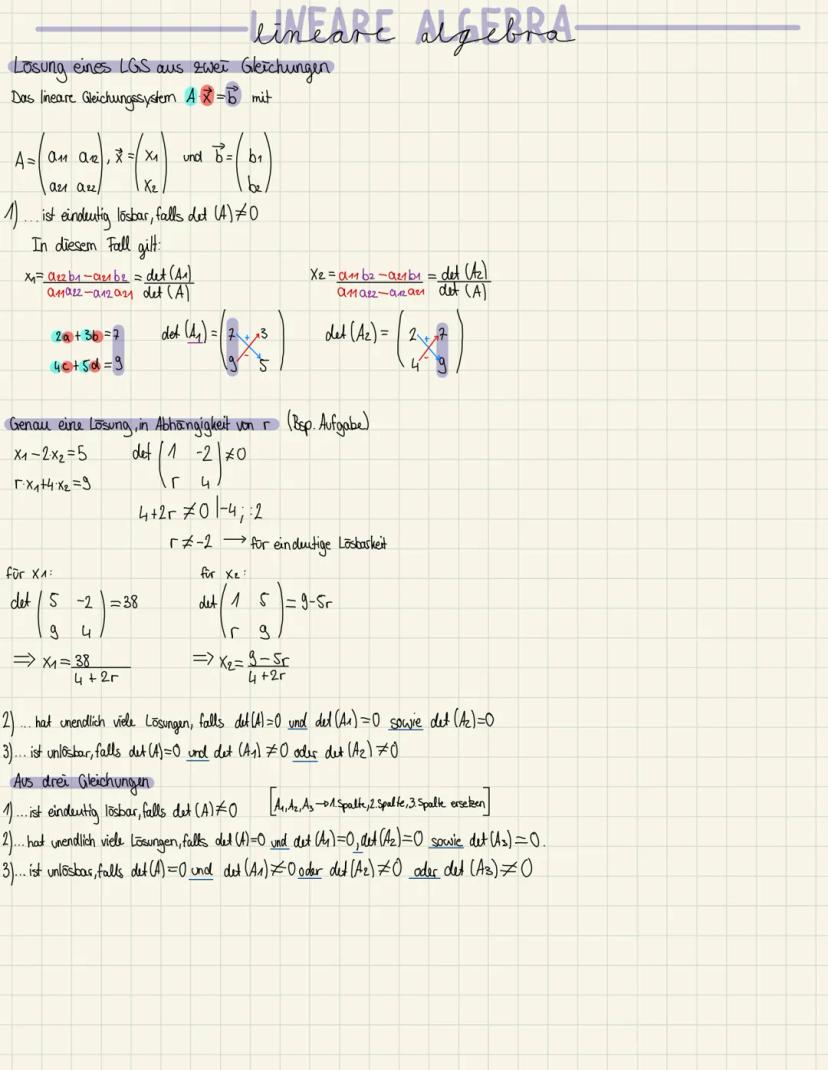 LINEARE ALGEBRA
lineare algebra
Lösung eines LGS aus zwei Gleichungen
Das lineare Gleichungssystem A·x⃗=b⃗ mit
A=(a11 a12), x⃗=(x1) und b⃗=(b1)
(a21 a22) (x2) (b2)
1)... ist eindeutig lösbar, falls det (A)≠0
In diesem Fall gilt:
x1= a22b1-a21b2 = det (A1) x2 = a11b2-a21b1 = det (A2)
a11a22-a12a21 det (A) a11a22-a12a21 det (A)
2a+3b=7 det (A1) = (7 + 3) det (A2) = (2 + 7)
4c+5d=9 (9 - 5) (4 - 9)
Genau eine Lösung, in Abhängigkeit von r (Bsp. Aufgabe)
x1-2·x2=5 det (1 -2) ≠0
r·x1+4·x2=9 (r 4)
4+2r ≠0 |-4; :2
r≠-2 → für eindeutige Lösbarkeit
für x1: für x2:
det (5 -2) =38 det (1 5) = 9-5r
(9 4) (r 9)
⇒ x1= 38 ⇒ x2= 9-5r
4+2r 4+2r
2)... hat unendlich viele Lösungen, falls det(A)=0 und det(A1)=0 sowie det (A2)=0
3)... ist unlösbar, falls det(A)=0 und det (A1)≠0 oder det (A2)≠0
Aus drei Gleichungen
1)... ist eindeutig lösbar, falls det (A)≠0 [A1, A2, A3 → 1. Spalte, 2. Spalte, 3. Spalte ersetzen]
2)... hat unendlich viele Lösungen, falls det(A)=0 und det (A1)=0, det(A2)=0 sowie det(A3)=0.
3)... ist unlösbar, falls det(A)=0 und det (A1)≠0 oder det(A2)≠0 oder det (A3)≠0